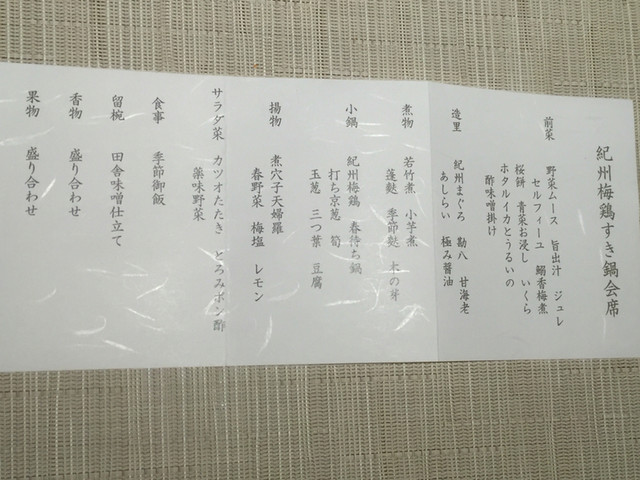 紀州梅鶏すき鍋会席
前菜 野菜ムース 旨出汁 ジュレ
セルフィーユ 鰯香梅煮
桜餅 青菜お浸し いくら
ホタルイカとうるいの
酢味噌掛け
造里 紀州まぐろ 勘八 甘海老
あしらい 極み醤油
煮物 若竹煮 小芋煮
蓬麩 季節麩 木の芽
小鍋 紀州梅鶏 春待ち鍋
打ち京葱 筍
玉葱 三つ葉 豆腐
揚物 煮穴子天婦羅
春野菜 梅塩 レモン
サラダ菜 カツオたたき とろみポン酢
薬味野菜
食事 季節御飯
留椀 田舎味噌仕立て
香物 盛り合わせ
果物 盛り合わせ